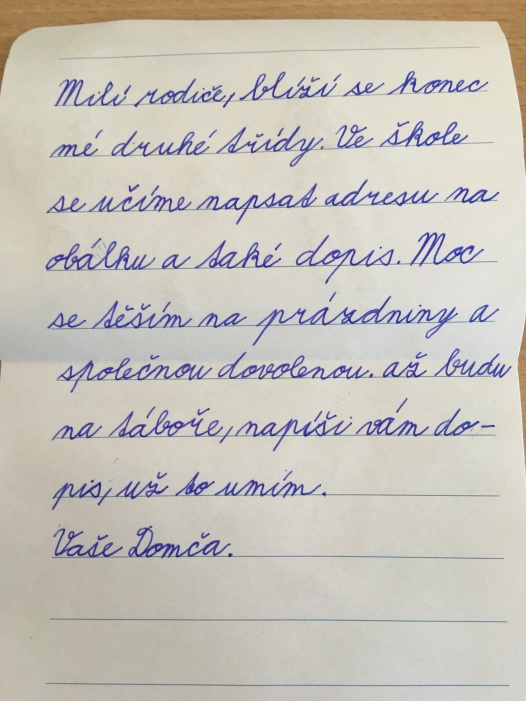 Milí rodiče, blíží se konec
mé druhé třídy. Ve škole
se učíme napsat adresu na
obálku a také dopis. Moc
se těším na prázdniny a
společnou dovolenou. až budu
na táboře, napíši vám do-
pis, už to umím.
Vaše Domča.